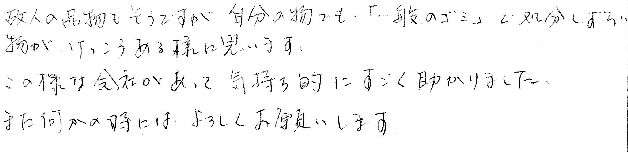 故人の品物もそうですが 自分の物でも、「一般のゴミ」で処分しずらい
物が、けっこうある様に思います。
この様な会社があって 気持ち的にすごく助かりました。
また何かの時には、よろしくお願いします